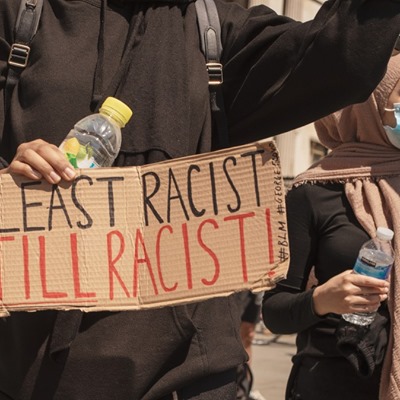 LEAST RACIST
TILL RACIST!
#BLM #GEORGE